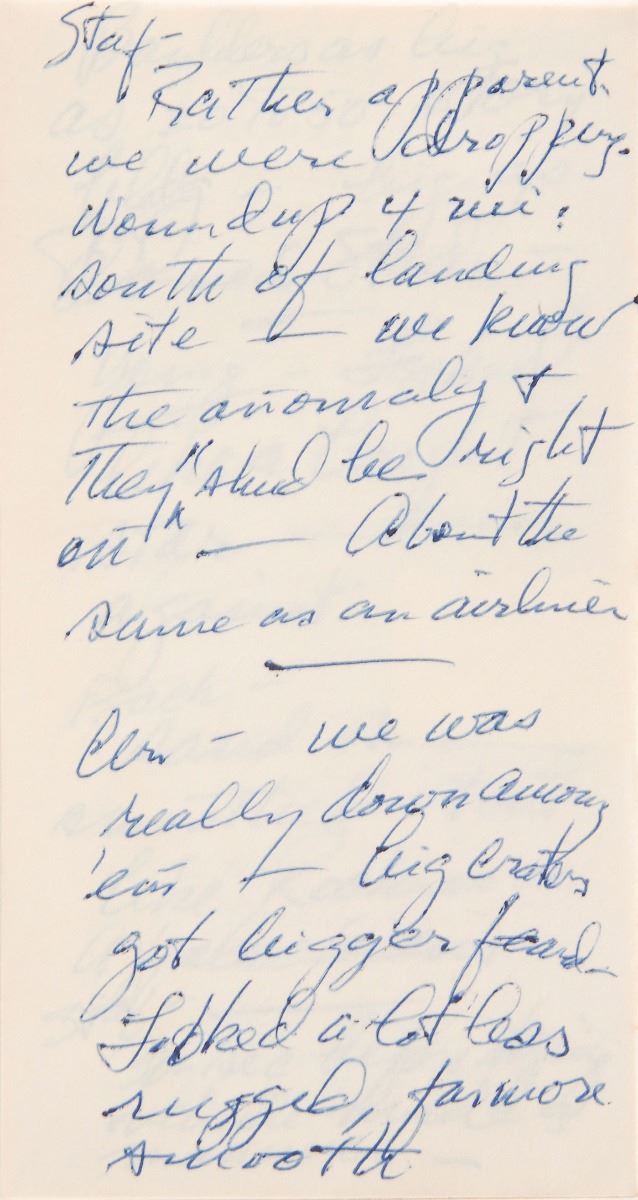 Staf -
Rather apparent
we were dropping.
Wound up 4 mi.
south of landing
site - we know
the anomaly &
they "shud be right
on" - About the
same as an airliner
Cern - we was
really down among
'em - big craters
got bigger
Looked a lot less
rugged, far more
smooth -